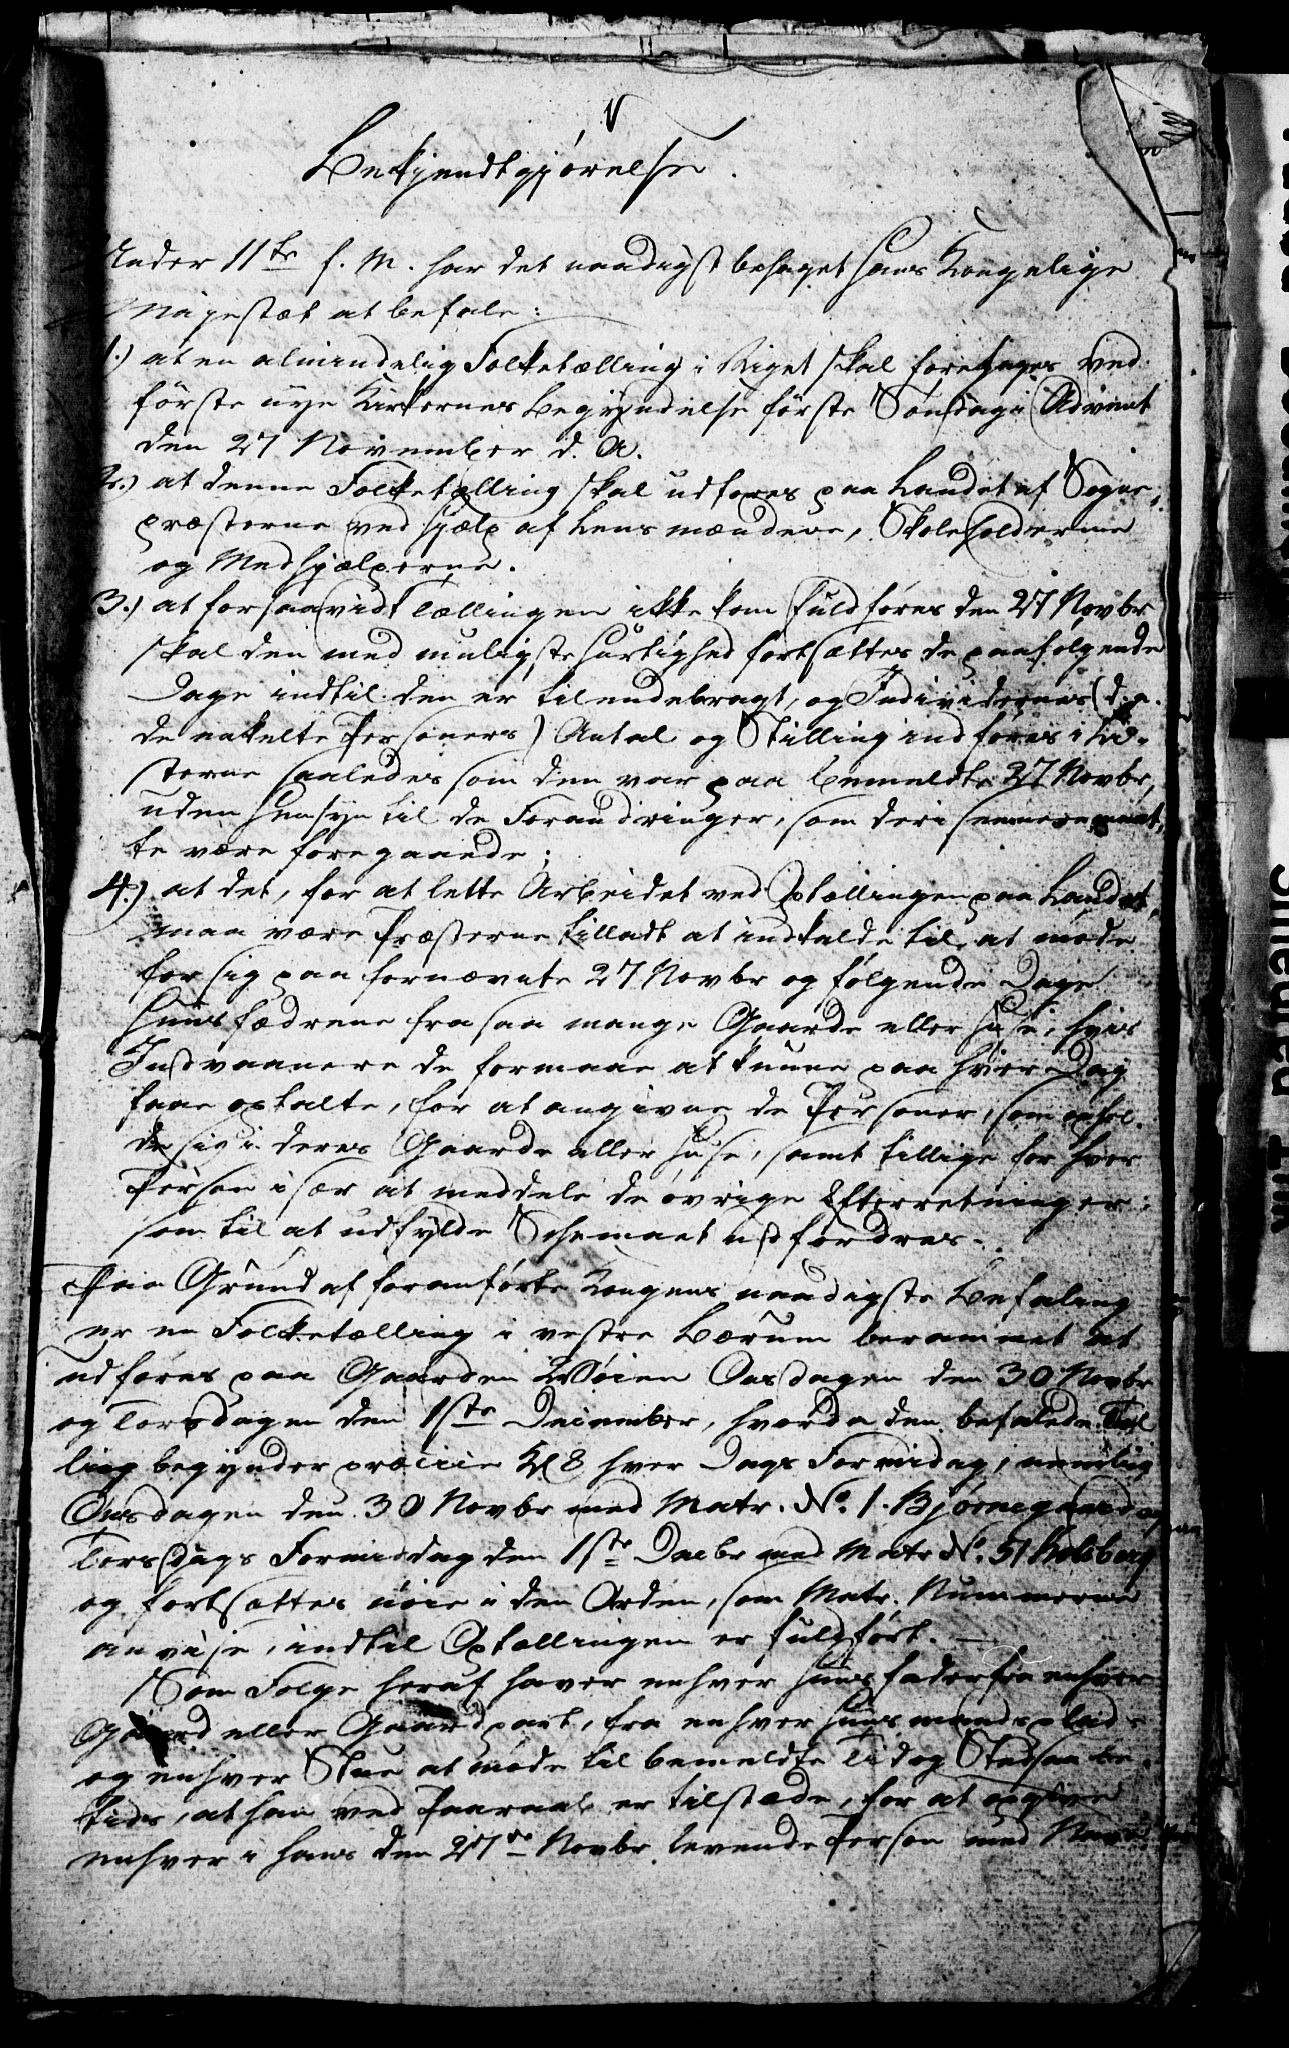 Bekjendtgjørelse.
Under 11te f. M. har det naadigst behaget Hans Kongelige
Majestæt at befale:
1.) at en almindelig Folketælling i Riget skal foretages ved
første nye Kirkeaars Begyndelse første Søndag i Advent
den 27 November d. A.
2.) at denne Folketælling skal udføres paa Landet af Sogne-
præsterne ved Hjelp af Lensmændene, Skoleholderne
og Medhjælperne.
3.) at forsaavidt Tællingen ikke kan fuldføres den 27 Novbr
skal den med muligste Hurtighed fortsættes de paafølgende
Dage indtil den er tilendebragt, og Individernes (d. e.
de enkelte Personers) Antal og Stilling indføres i Li-
sterne saaledes som den var paa bemeldte 27 Novbr,
uden Hensyn til de Forandringer, som deri senere maat-
te være foregaaede;
4.) at det, for at lette Arbeidet ved Optællingen paa Landet,
maa være Præsterne tilladt at indkalde til at møde
for sig paa fornævnte 27 Novbr og følgende Dage
Huusfædrene fra saa mange Gaarde eller Huse, hvis
Indvaanere de formaae at kunne paa hver Dag
faae optalte, for at angive de Personer, som ophol-
de sig i deres Gaarde eller Huse, samt tillige for hver
Person især at meddele de øvrige Efterretninger
som til at udfylde Schemaet udfordres.
Paa Grund af foranførte Kongens naadigste Befaling
er en Folketælling i vestre Bærum berammet at
udføres paa Gaarden Wøien Onsdagen den 30 Novbr
og Torsdagen den 1ste December, hvorda den befalede Tæl
ling begynder præcise Kl 8 hver Dags Formidag, nemlig
Onsdagen den 30 Novbr med Matr. No. 1. Bjørnegaard og
Torsdags Formiddag den 1ste Decbr med Matr No. 51 Kolsberg
og fortsættes nøie i den Orden, som Matr. Nummerne
anvise, indtil Optællingen er fuldført. —
Som Følge heraf haver enhver Huusfader fra enhver
Gaard eller Gaardpart, fra enhver Huusmandsplads
og enhver Stue at møde til bemeldte Tid og Sted saa be-
tids, at han ved Paaraab er tilstæde, for at opgive
enhver i Hans den 27de Novbr levende Person med Navn